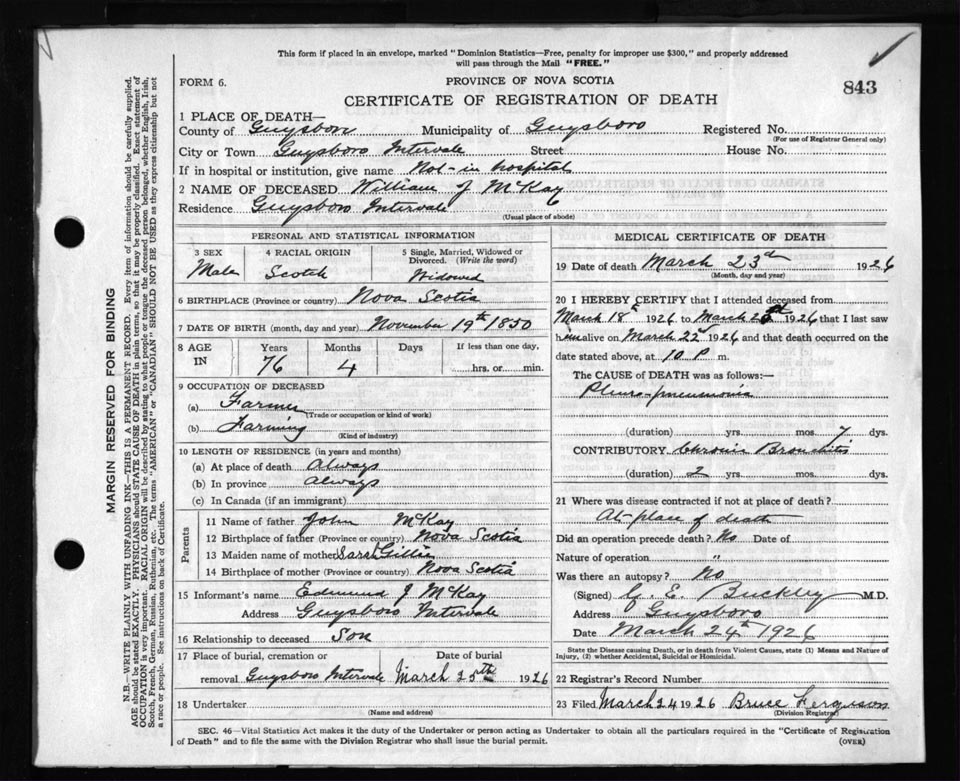 This form if placed in an envelope, marked "Dominion Statistics—Free, penalty for improper use $300," and properly addressed
will pass through the Mail "FREE."
FORM 6.
PROVINCE OF NOVA SCOTIA
843
CERTIFICATE OF REGISTRATION OF DEATH
1 PLACE OF DEATH—
County of Guysboro Municipality of Guysboro Registered No.
(For use of Registrar General only)
City or Town Guysboro Intervale Street House No.
If in hospital or institution, give name Not in hospital
2 NAME OF DECEASED William J McKay
Residence Guysboro Intervale
(Usual place of abode)
PERSONAL AND STATISTICAL INFORMATION
3 SEX 4 RACIAL ORIGIN 5 Single, Married, Widowed or
Divorced. (Write the word)
Male Scotch Widowed
6 BIRTHPLACE (Province or country) Nova Scotia
7 DATE OF BIRTH (month, day and year) November 19th 1850
8 AGE IN Years Months Days If less than one day,
76 4 hrs. or min.
9 OCCUPATION OF DECEASED
(a) Farmer
(Trade or occupation or kind of work)
(b) Farming
(Kind of industry)
10 LENGTH OF RESIDENCE (in years and months)
(a) At place of death Always
(b) In province Always
(c) In Canada (if an immigrant)
Parents
11 Name of father John McKay
12 Birthplace of father (Province or country) Nova Scotia
13 Maiden name of mother Sarah Gillis
14 Birthplace of mother (Province or country) Nova Scotia
15 Informant's name Edmund J McKay
Address Guysboro Intervale
16 Relationship to deceased Son
17 Place of burial, cremation or Date of burial
removal Guysboro Intervale March 25th 1926
18 Undertaker
(Name and address)
MEDICAL CERTIFICATE OF DEATH
19 Date of death March 23d 1926
(Month, day and year)
20 I HEREBY CERTIFY that I attended deceased from
March 18th 1926 to March 1926 that I last saw
him alive on March 22nd 1926 and that death occurred on the
date stated above, at 10 P m.
The CAUSE OF DEATH was as follows:—
Pleuro-pneumonia
(duration) yrs. mos. 7 dys.
CONTRIBUTORY Chronic Bronchitis
(duration) 2 yrs. mos. dys.
21 Where was disease contracted if not at place of death?
At place of death
Did an operation precede death? No Date of
Nature of operation "
Was there an autopsy? No
(Signed) E. Buckley M.D.
Address Guysboro
Date March 24th 1926
State the Disease causing Death, or in death from Violent Causes, state (1) Means and Nature of
Injury, (2) whether Accidental, Suicidal or Homicidal.
22 Registrar's Record Number
23 Filed March 24 1926 Bruce Ferguson
(Division Registrar)
SEC. 46—Vital Statistics Act makes it the duty of the Undertaker or person acting as Undertaker to obtain all the particulars required in the "Certificate of Registration
of Death" and to file the same with the Division Registrar who shall issue the burial permit.
(OVER)
MARGIN RESERVED FOR BINDING
N.B.—WRITE PLAINLY WITH UNFADING INK—THIS IS A PERMANENT RECORD. Every item of information should be carefully supplied.
AGE should be stated EXACTLY. PHYSICIANS should STATE CAUSE OF DEATH in plain terms, so that it may be properly classified. Exact statement of
OCCUPATION is very important. RACIAL ORIGIN will be described by stating to what people or tongue the deceased person belonged, whether English, Irish,
Scotch, French, German, Russian, Ruthenian, etc. The terms "AMERICAN" or "CANADIAN" SHOULD NOT BE USED as they express citizenship but not
a race or people. See instructions on back of Certificate.